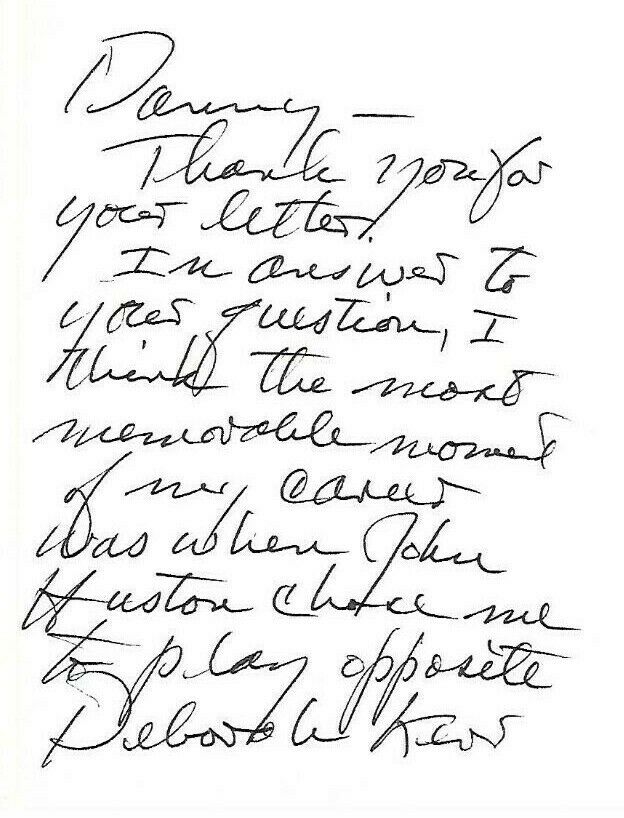 Danny —
Thank you for
your letter.
In answer to
your question, I
think the most
memorable moment
of my career
was when John
Huston chose me
to play opposite
Deborah Kerr